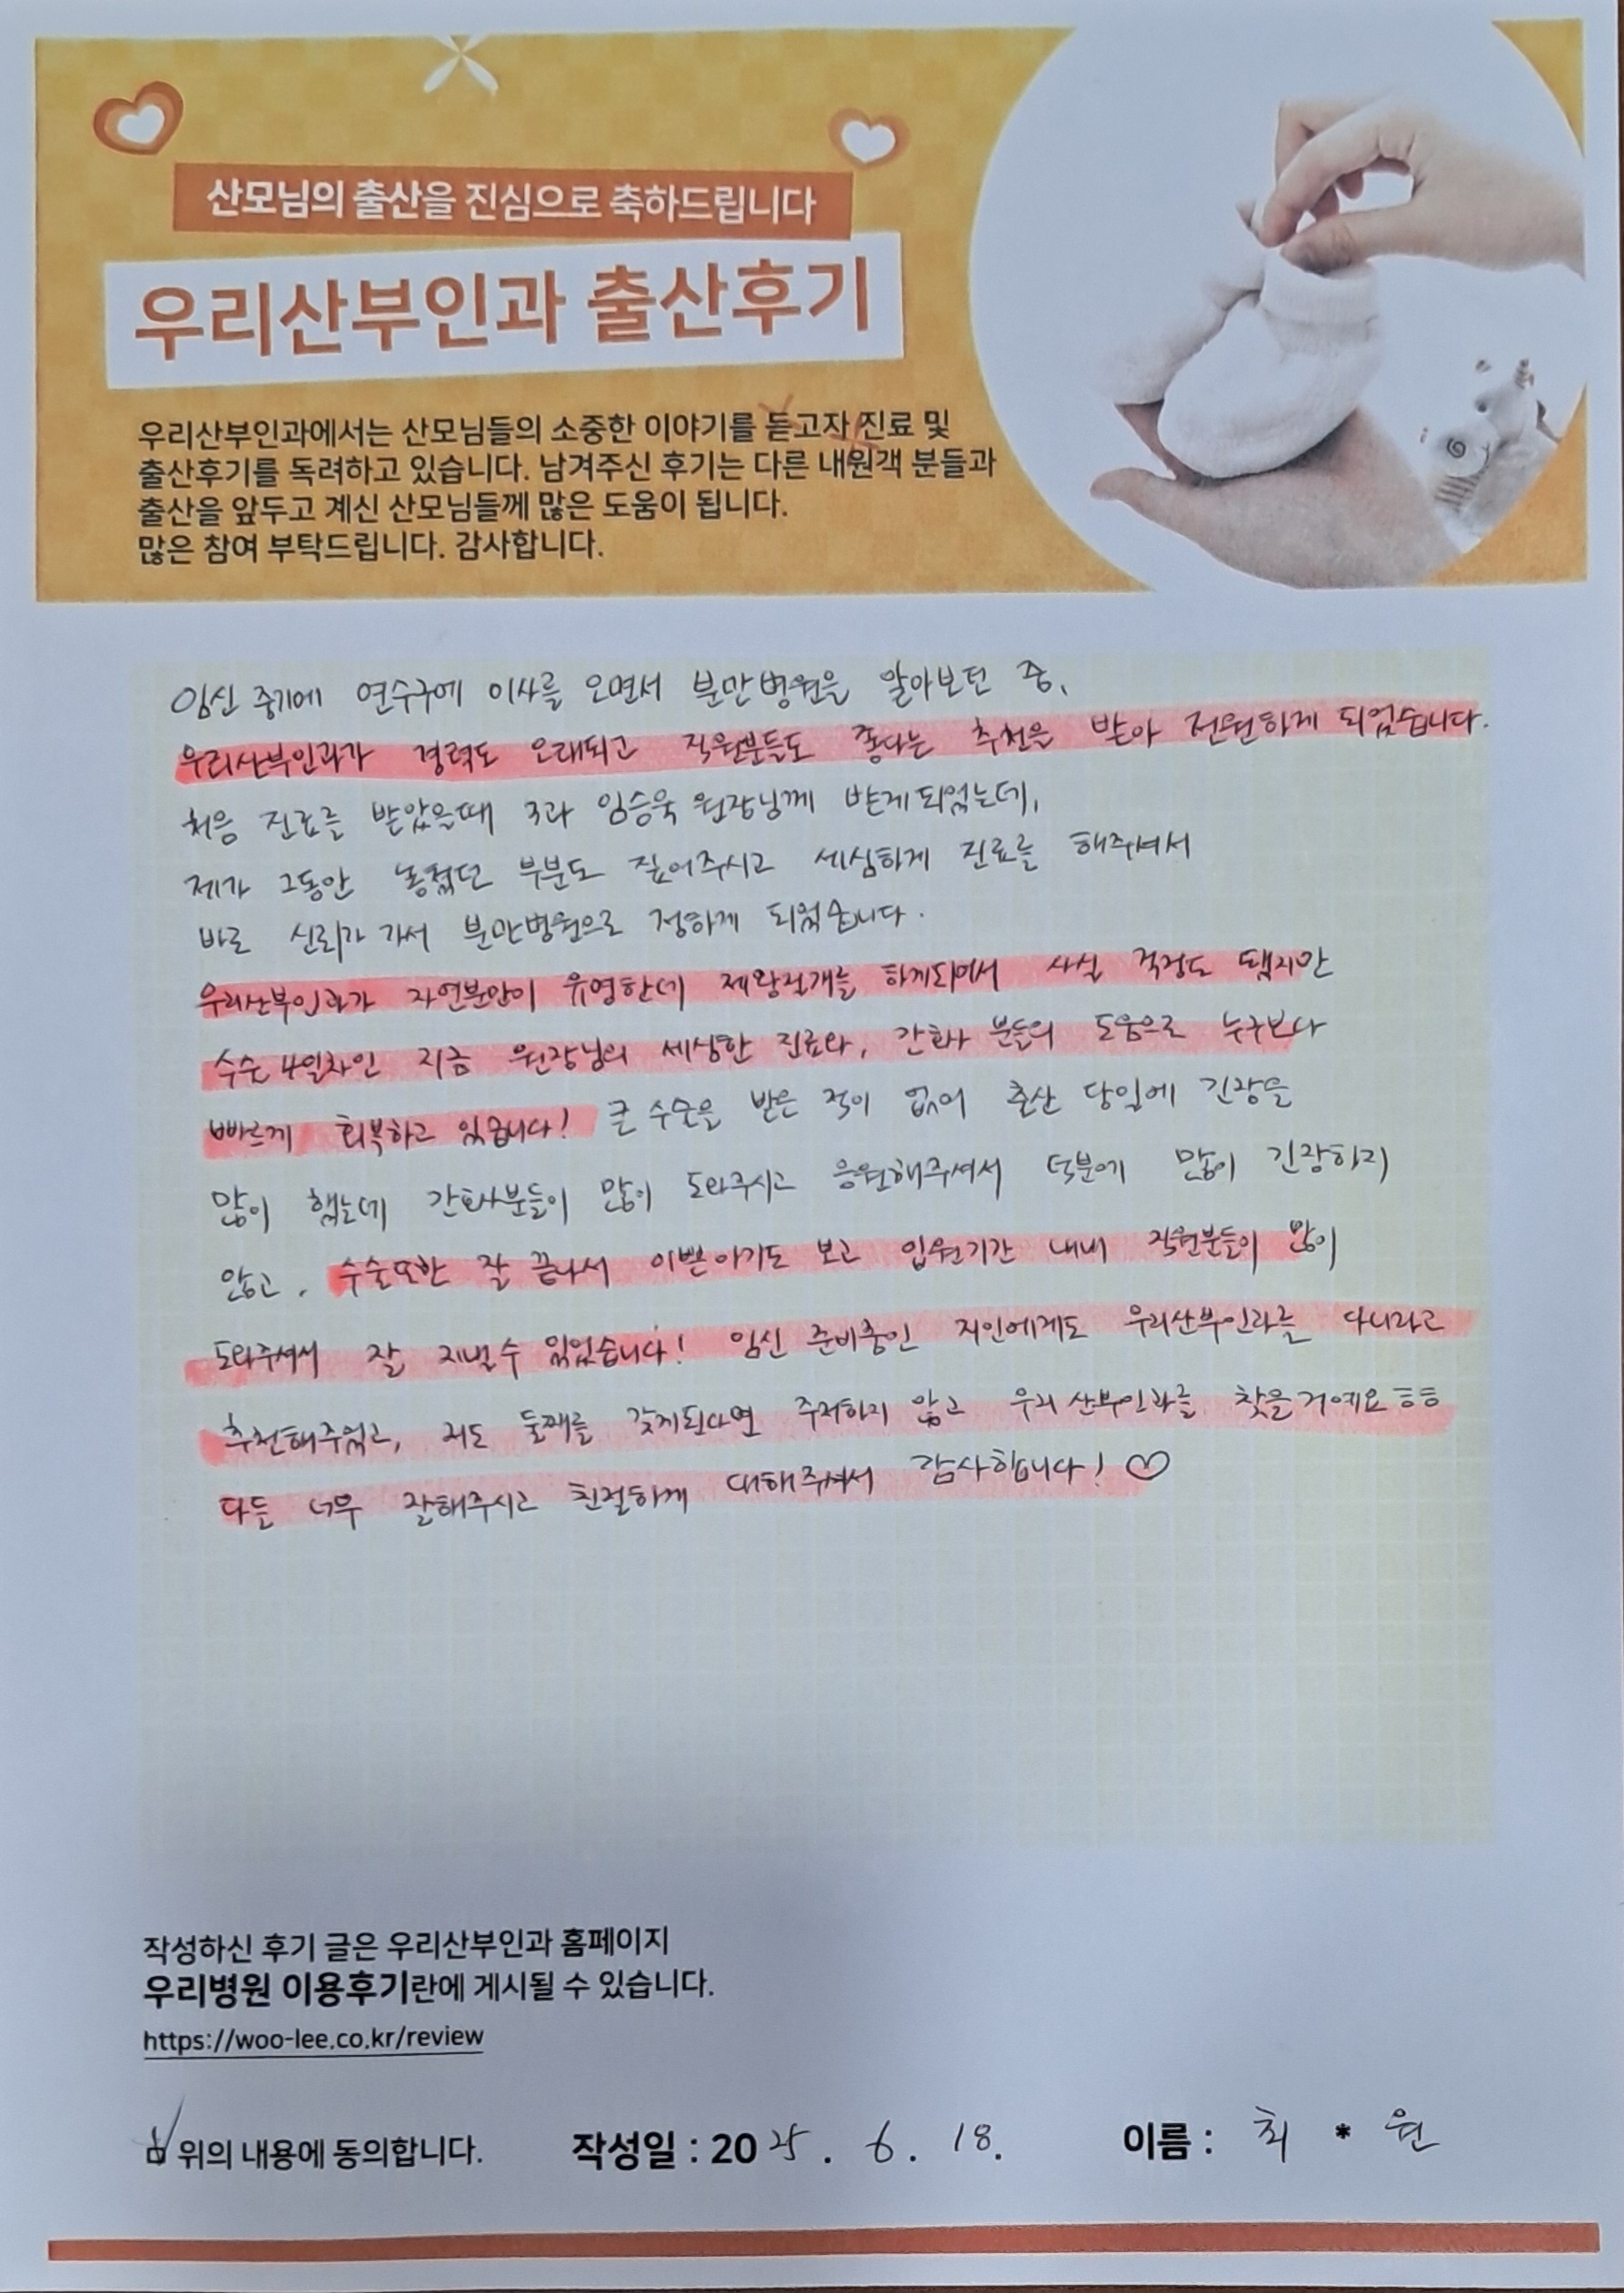 산모님의 출산을 진심으로 축하드립니다
우리산부인과 출산후기
우리산부인과에서는 산모님들의 소중한 이야기를 듣고자 진료 및
출산후기를 독려하고 있습니다. 남겨주신 후기는 다른 내원객 분들과
출산을 앞두고 계신 산모님들께 많은 도움이 됩니다.
많은 참여 부탁드립니다. 감사합니다.
임신 중기에 연수구에 이사를 오면서 분만병원을 알아보던 중,
우리산부인과가 경력도 오래되고 직원분들도 좋다는 추천을 받아 전원하게 되었습니다.
처음 진료를 받았을때 3과 임승욱 원장님께 받게되었는데,
제가 그동안 놓쳤던 부분도 짚어주시고 세심하게 진료를 해주셔서
바로 신뢰가 가서 분만병원으로 정하게 되었습니다.
우리산부인과가 자연분만이 유명한데 제왕절개를 하게되어서 사실 걱정도 됐지만
수술 4일차인 지금 원장님의 세심한 진료와, 간호사 분들의 도움으로 누구보다
빠르게 회복하고 있습니다! 큰 수술을 받은 적이 없어 출산 당일에 긴장을
많이 했는데 간호사분들이 많이 도와주시고 응원해주셔서 덕분에 많이 긴장하지
않고, 수술또한 잘 끝나서 이쁜아기도 보고 입원기간 내내 직원분들이 많이
도와주셔서 잘 지낼수 있었습니다! 임신 준비중인 지인에게도 우리산부인과를 다니라고
추천해주었고, 저도 둘째를 갖게된다면 주저하지 않고 우리산부인과를 찾을거예요ㅎㅎ
다들 너무 잘해주시고 친절하게 대해주셔서 감사합니다! ♡
작성하신 후기 글은 우리산부인과 홈페이지
우리병원 이용후기란에 게시될 수 있습니다.
https://woo-lee.co.kr/review
위의 내용에 동의합니다. 작성일 : 2025. 6. 18. 이름 : 최 * 원